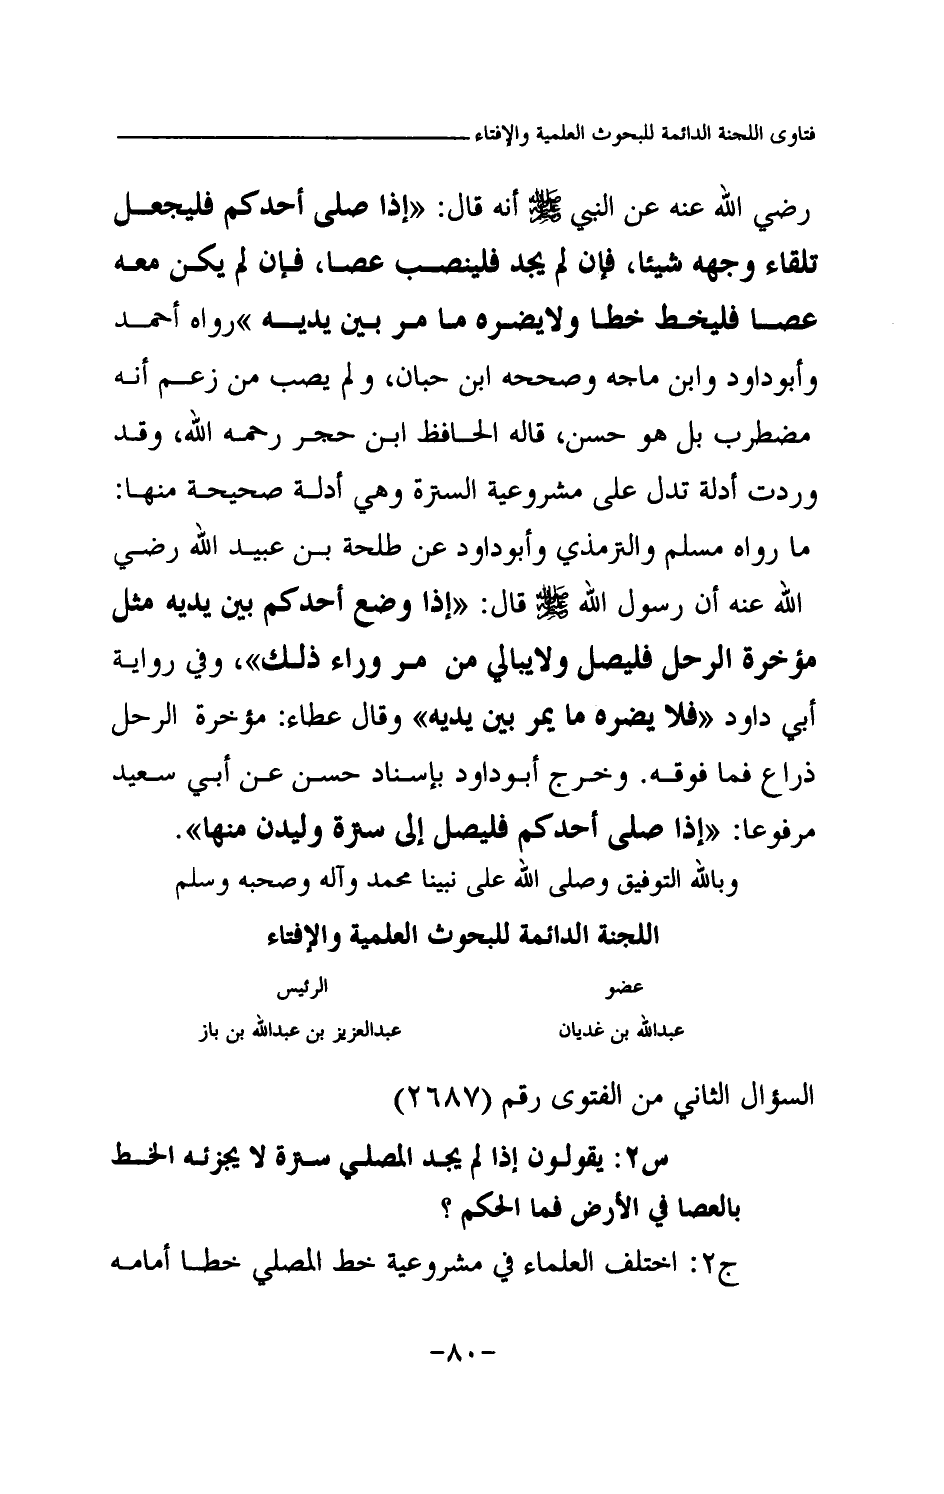 فتاوى اللجنة الدائمة للبحوث العلمية والإفتاء
رضي الله عنه عن النبي ﷺ أنه قال: «إذا صلى أحدكم فليجعل
تلقاء وجهه شيئا، فإن لم يجد فلينصب عصا، فإن لم يكن معه
عصا فليخط خطا ولايضره ما مر بين يديه »رواه أحمد
وأبوداود وابن ماجه وصححه ابن حبان، ولم يصب من زعم أنه
مضطرب بل هو حسن، قاله الحافظ ابن حجر رحمه الله، وقد
وردت أدلة تدل على مشروعية السترة وهي أدلة صحيحة منها:
ما رواه مسلم والترمذي وأبوداود عن طلحة بن عبيد الله رضي
الله عنه أن رسول الله ﷺ قال: «إذا وضع أحدكم بين يديه مثل
مؤخرة الرحل فليصل ولايبالي من مر وراء ذلك»، وفي رواية
أبي داود «فلا يضره ما يمر بين يديه» وقال عطاء: مؤخرة الرحل
ذراع فما فوقه. وخرج أبوداود بإسناد حسن عن أبي سعيد
مرفوعا: «إذا صلى أحدكم فليصل إلى سترة وليدن منها».
وبالله التوفيق وصلى الله على نبينا محمد وآله وصحبه وسلم
اللجنة الدائمة للبحوث العلمية والإفتاء
عضو الرئيس
عبدالله بن غديان عبدالعزيز بن عبدالله بن باز
السؤال الثاني من الفتوى رقم (٢٦٨٧)
س٢: يقولون إذا لم يجد المصلي سترة لا يجزئه الخط
بالعصا في الأرض فما الحكم ؟
ج٢: اختلف العلماء في مشروعية خط المصلي خطا أمامه
-٨٠-